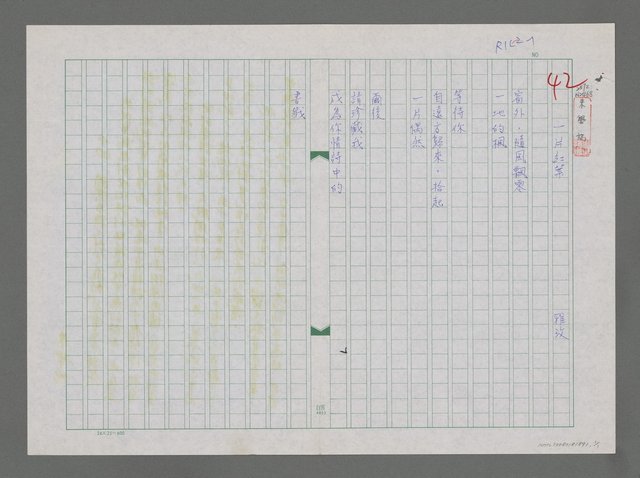 NO
42
一片紅葉
雅汶
窗外，隨風飄零
一地的楓
等待你
自遠方歸來，拾起
一片偶然
爾後
請珍藏我
成為你情詩中的
書籤